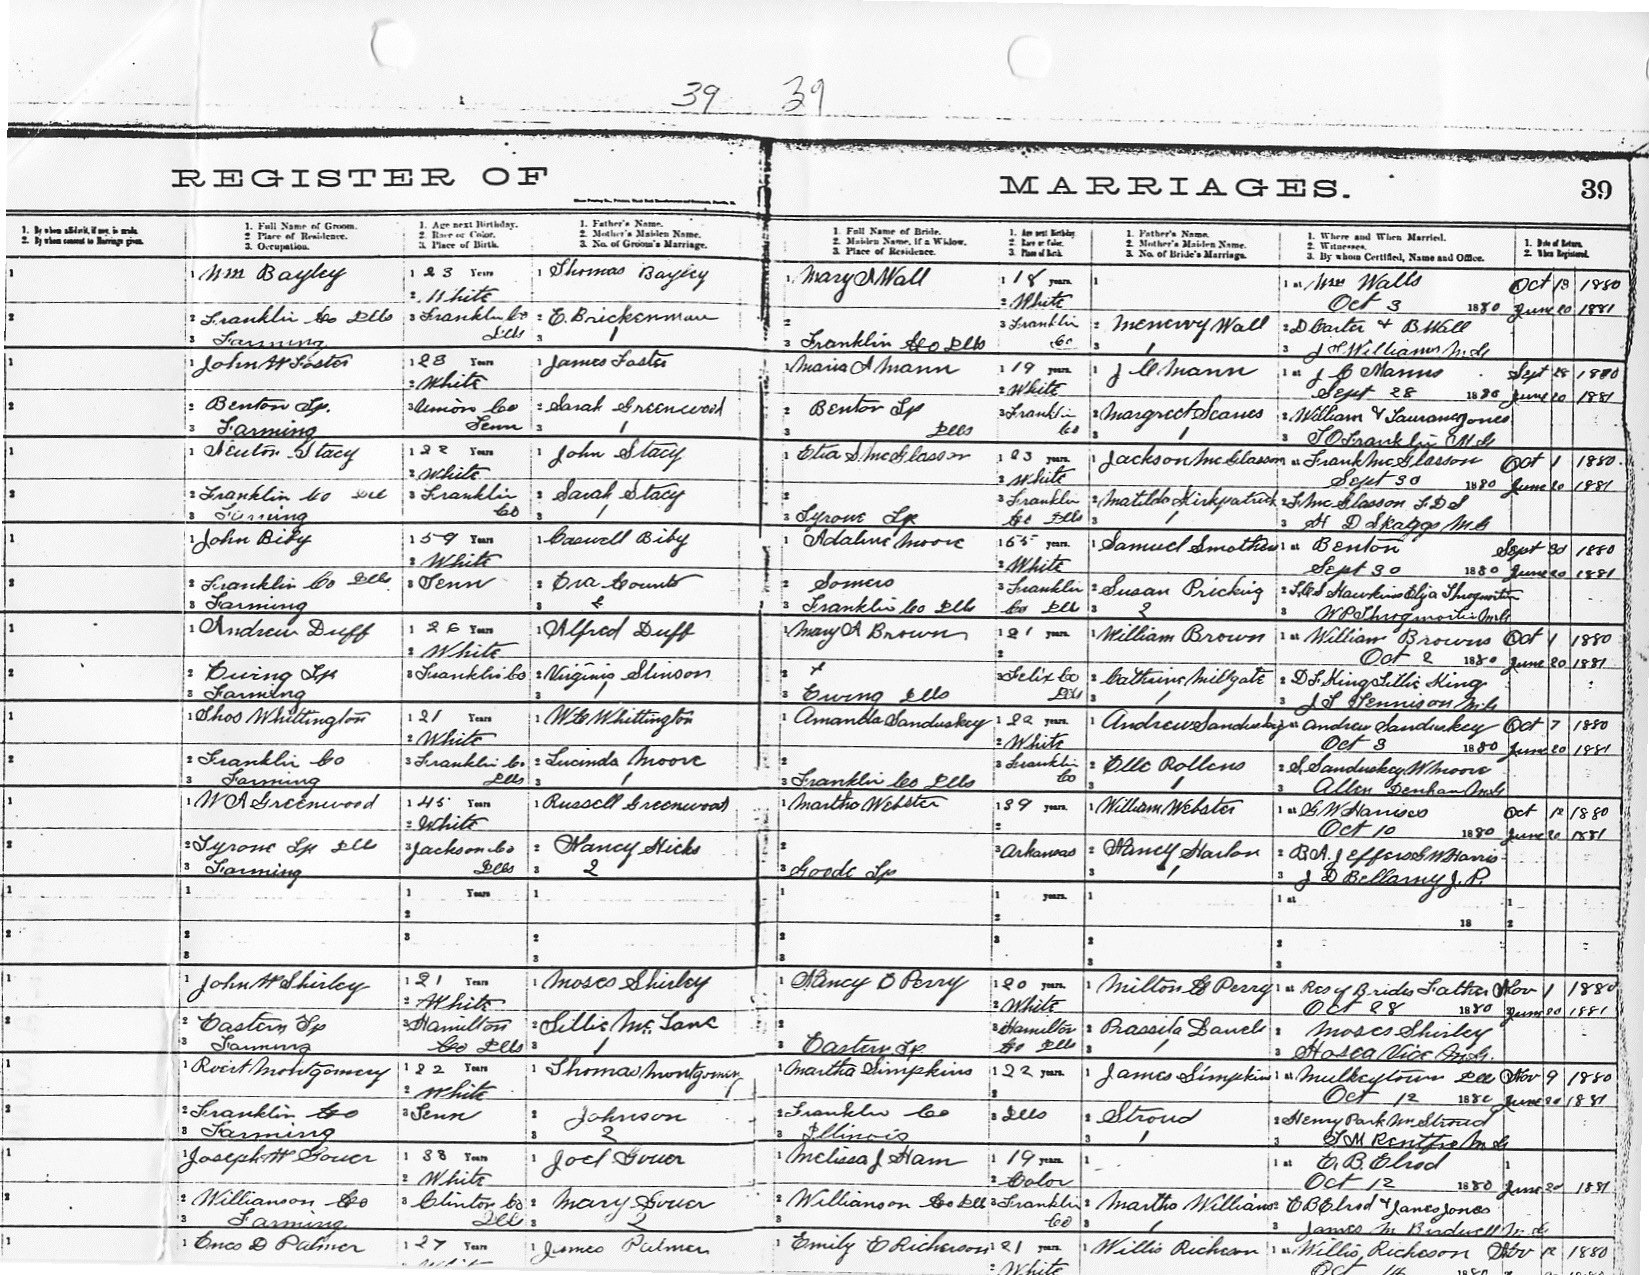 39 39
REGISTER OF MARRIAGES. 39
1. By whom affidavit, if any, is made.
2. By whom consent to Marriage given.
1. Full Name of Groom.
2. Place of Residence.
3. Occupation.
1. Age next Birthday.
2. Race or Color.
3. Place of Birth.
1. Father's Name.
2. Mother's Maiden Name.
3. No. of Groom's Marriage.
1. Full Name of Bride.
2. Maiden Name, if a Widow.
3. Place of Residence.
1. Age next Birthday
2. Race or Color.
3. Place of Birth.
1. Father's Name.
2. Mother's Maiden Name.
3. No. of Bride's Marriage.
1. Where and When Married.
2. Witnesses.
3. By whom Certified, Name and Office.
1. Date of Return.
2. When Registered.
1 1 Wm Bayley 1 23 Years 1 Thomas Bayley 1 Mary J Wall 1 18 years. 1 1 at Wm Walls Oct 13 1880
2 White 2 White Oct 3 1880 June 20 1881
2 2 Franklin Co Ills 3 Franklin Co Ills 2 E. Brickenman 2 3 Franklin Co 2 Menervy Wall 2 D Carter & B Wall
3 Farming 3 1 3 Franklin Co Ills 3 1 3 J T Williams M.G
1 1 John W Foster 1 23 Years 1 James Foster 1 Maria A Mann 1 19 years. 1 J C Mann 1 at J C Manns Sept 28 1880
2 White 2 White Sept 28 1880 June 20 1881
2 2 Benton Tp. 3 Union Co Tenn 2 Sarah Greenwood 2 Benton Tp 3 Franklin Co 2 Margret Scanes 2 William & Jones
3 Farming 3 1 3 Ills 3 1 3 T O Franklin M.G
1 1 Newton Stacy 1 22 Years 1 John Stacy 1 McGlasson 1 23 years. 1 Jackson McGlasson 1 at Frank McGlasson Oct 1 1880
2 White 2 White Sept 30 1880 June 20 1881
2 2 Franklin Co Ill 3 Franklin Co 2 Sarah Stacy 2 3 Franklin Co Ills 2 Matilda Kirkpatrick 2 McGlasson
3 Farming 3 1 3 Tyrone Tp 3 1 3 H D Skaggs M.G
1 1 John Biby 1 59 Years 1 Caswell Biby 1 Adaline Moore 1 55 years. 1 Samuel Smothers 1 at Benton Sept 30 1880
2 White 2 White Sept 30 1880 June 20 1881
2 2 Franklin Co Ills 3 Tenn 2 Counts 2 Somers 3 Franklin Co Ills 2 Susan Pricking 2 Hawkins Eliza Throgmorton
3 Farming 3 3 Franklin Co Ills 3 2 3 W P Throgmorton M.G
1 1 Andrew Duff 1 26 Years 1 Alfred Duff 1 Mary A Brown 1 21 years. 1 William Brown 1 at William Browns Oct 1 1880
2 White 2 Oct 2 1880 June 20 1881
2 2 Ewing Tp 3 Franklin Co 2 Virginia Stinson 2 3 Felix Co Ills 2 Cathrine Millgate 2 D F King Tillie King
3 Farming 3 1 3 Ewing Ills 3 1 3 J T Tennison M.G
1 1 Thos Whittington 1 21 Years 1 W G Whittington 1 Amanda Sanduskey 1 22 years. 1 Andrew Sanduskey 1 at Andrew Sanduskey Oct 7 1880
2 White 2 White Oct 3 1880 June 20 1881
2 2 Franklin Co 3 Franklin Co Ills 2 Lucinda Moore 2 3 Franklin Co 2 Elle Rollens 2 S. Sanduskey W Moore
3 Farming 3 1 3 Franklin Co Ills 3 1 3 Allen Denham M.G
1 1 W A Greenwood 1 45 Years 1 Russell Greenwood 1 Martha Webster 1 39 years. 1 William Webster 1 at G W Harrises Oct 12 1880
2 White 2 Oct 10 1880 June 20 1881
2 2 Tyrone Tp Ills 3 Jackson Co Ills 2 Nancy Hicks 2 3 Arkansas 2 Nancy Harlon 2 B A. Jeffers G W Harris
3 Farming 3 2 3 Goode Tp 3 1 3 J D Bellamy J.P.
1 1 1 Years 1 1 1 years. 1 1 at 1
2 2 18 2
2 2 3 2 2 3 2 2
3 3 3 3 3
1 1 John W Shirley 1 21 Years 1 Moses Shirley 1 Nancy E Perry 1 20 years. 1 Milton G Perry 1 at Res of Brides Father Nov 1 1880
2 White 2 White Oct 28 1880 June 20 1881
2 2 Eastern Tp 3 Hamilton Co Ills 2 Tillie McLane 2 3 Hamilton Co Ills 2 2 Moses Shirley
3 Farming 3 1 3 Eastern Tp 3 1 3 Hosea Vice M.G.
1 1 Rvert Montgomery 1 22 Years 1 Thomas Montgomery 1 Martha Simpkins 1 22 years. 1 James Simpkins 1 at Mulkeytown Ill Nov 9 1880
2 White Oct 12 1880 June 20 1881
2 2 Franklin Co 3 Tenn 2 Johnson 2 Franklin Co 3 Ills 2 Stroud 2 Henry Park Wm Stroud
3 Farming 3 2 3 Illinois 3 1 3 Rentfro M.G
1 1 Joseph W Gower 1 33 Years 1 Joel Gower 1 Melissa J Ham 1 19 years. 1 1 at E. B. Elrod 1
2 White 2 Color Oct 12 1880 June 20 1881
2 2 Williamson Co 3 Clinton Co Ills 2 Mary Gower 2 Williamson Co Ill 3 Franklin Co 2 Martha Williams 2 E B Elrod & James Jones
3 Farming 3 2 3 3 1 3 James M Bradwell M.G.
1 1 Enos D Palmer 1 27 Years 1 James Palmer 1 Emily E Richerson 1 21 years. 1 Willis Richeson 1 at Willis Richeson Nov 12 1880
2 White 2 White Oct 14 1880